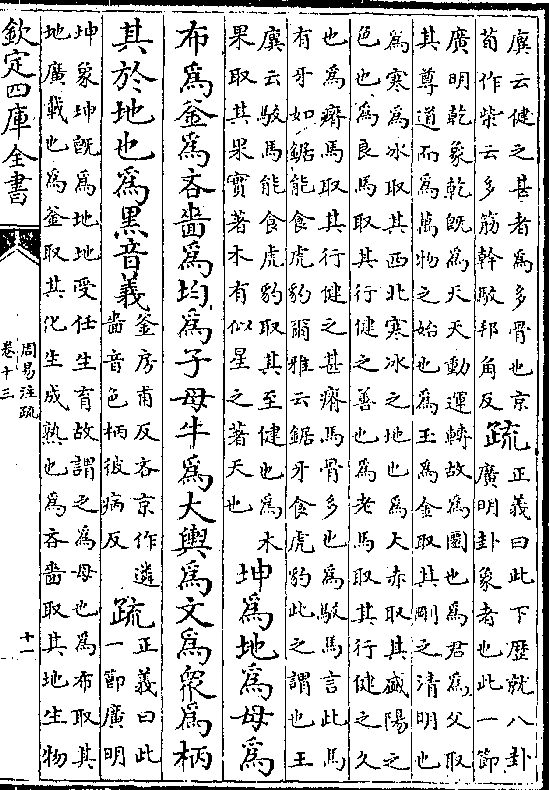 虞云健之甚者為多骨也京
荀作柴云多筋幹駮邦角反
疏
正義曰此下歴就八卦
廣明卦象者也此一節
廣明乾象乾既為天天動運轉故為圜也為君為父取
其尊道而為萬物之始也為玉為金取其剛之清明也
為寒為冰取其西北寒冰之地也為大赤取其盛陽之
色也為良馬取其行健之善也為老馬取其行健之久
也為瘠馬取其行健之甚瘠馬骨多也為駮馬言此馬
有牙如鋸能食虎豹爾雅云鋸牙食虎豹此之謂也王
廙云駮馬能食虎豹取其至健也為木
果取其果實著木有似星之著天也
坤為地為母為
布為釜為吝嗇為均為子母牛為大輿為文為衆為柄
其於地也為黒音義
釜房甫反吝京作遴
嗇音色柄彼病反
疏
正義曰此
一節廣明
坤象坤既為地地受任生育故謂之為母也為布取其
地廣載也為釜取其化生成熟也為吝嗇取其地生物
欽定四庫全書
周易注疏
卷十三
十一